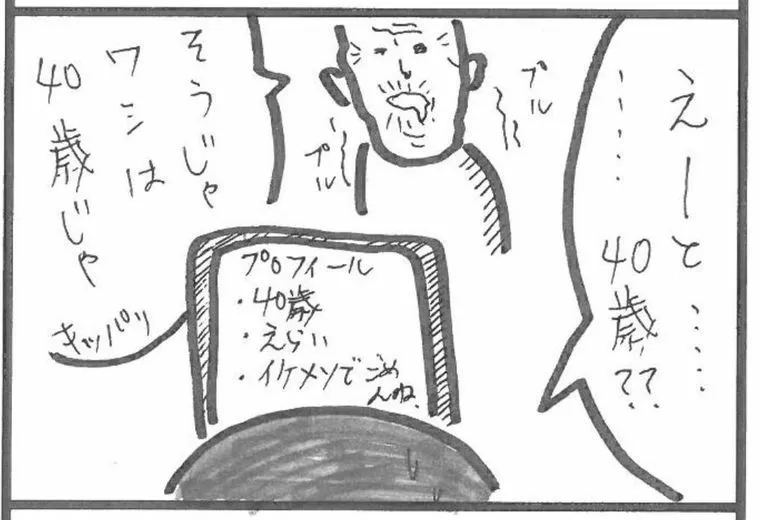 えーと……
……
40歳??
プル
プル
そうじゃ
ワシは
40歳じゃ
キッパリ
プロフィール
・40歳
・えらい
・イケメンでごめ
んね、